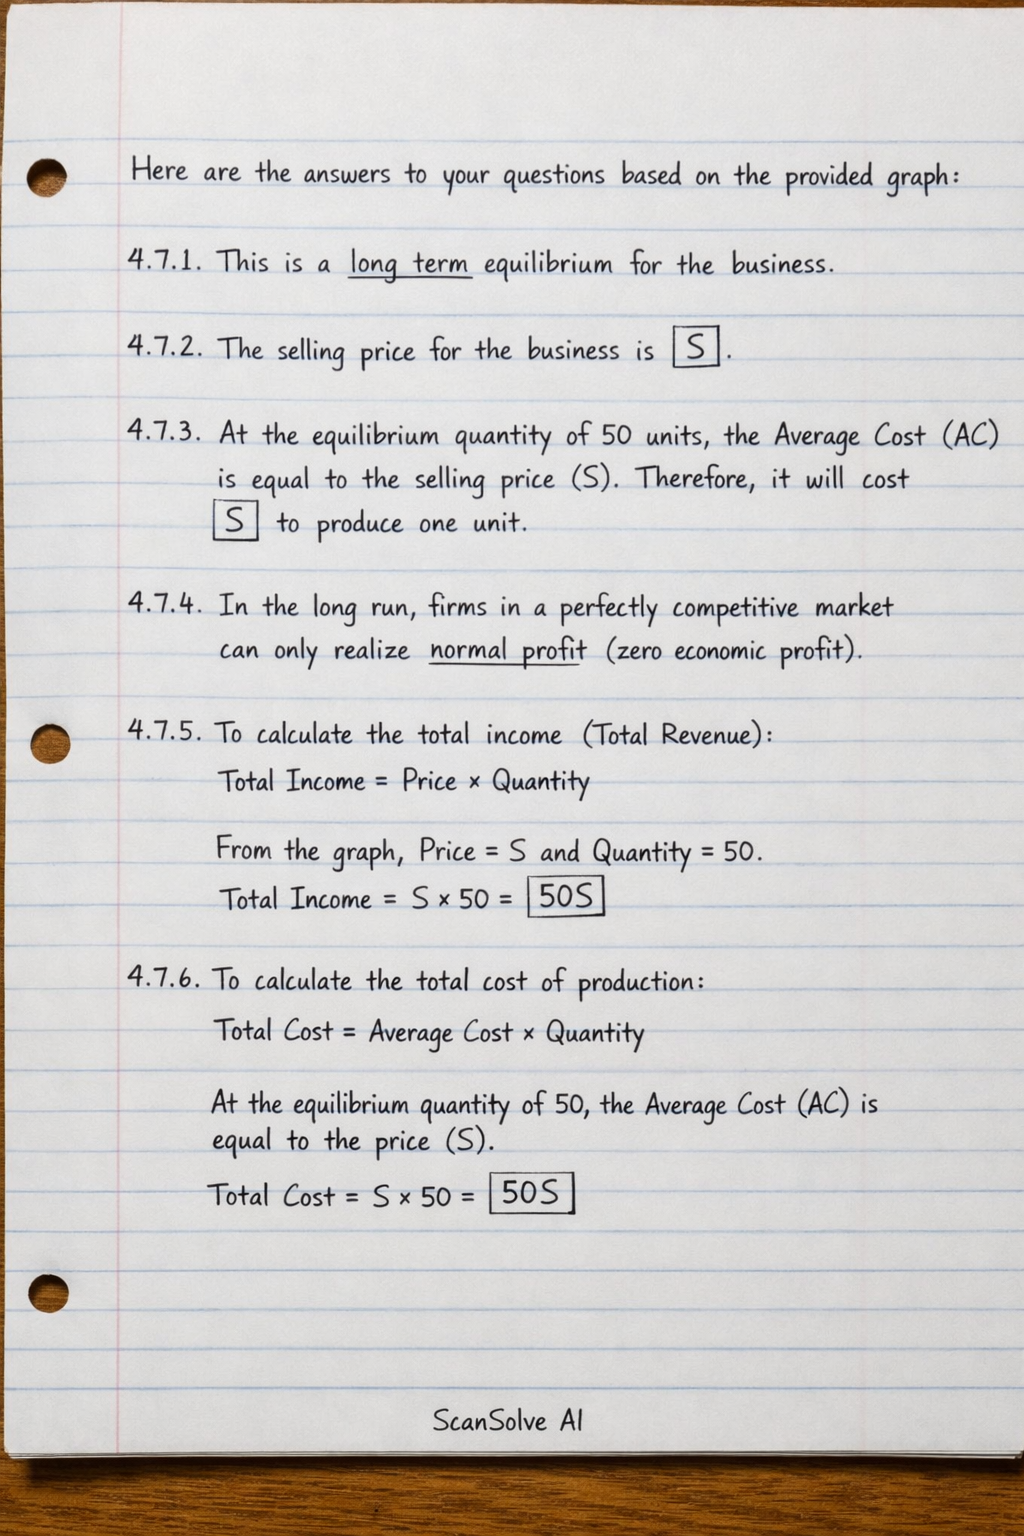 Here are the answers to your questions based on the provided graph:
4.7.1. This is a long term equilibrium for the business.
4.7.2. The selling price for the business is S.
4.7.3. At the equilibrium quantity of 50 units, the Average Cost (AC)
is equal to the selling price (S). Therefore, it will cost
S to produce one unit.
4.7.4. In the long run, firms in a perfectly competitive market
can only realize normal profit (zero economic profit).
4.7.5. To calculate the total income (Total Revenue):
Total Income = Price × Quantity
From the graph, Price = S and Quantity = 50.
Total Income = S × 50 = 50S
4.7.6. To calculate the total cost of production:
Total Cost = Average Cost × Quantity
At the equilibrium quantity of 50, the Average Cost (AC) is
equal to the price (S).
Total Cost = S × 50 = 50S
ScanSolve AI